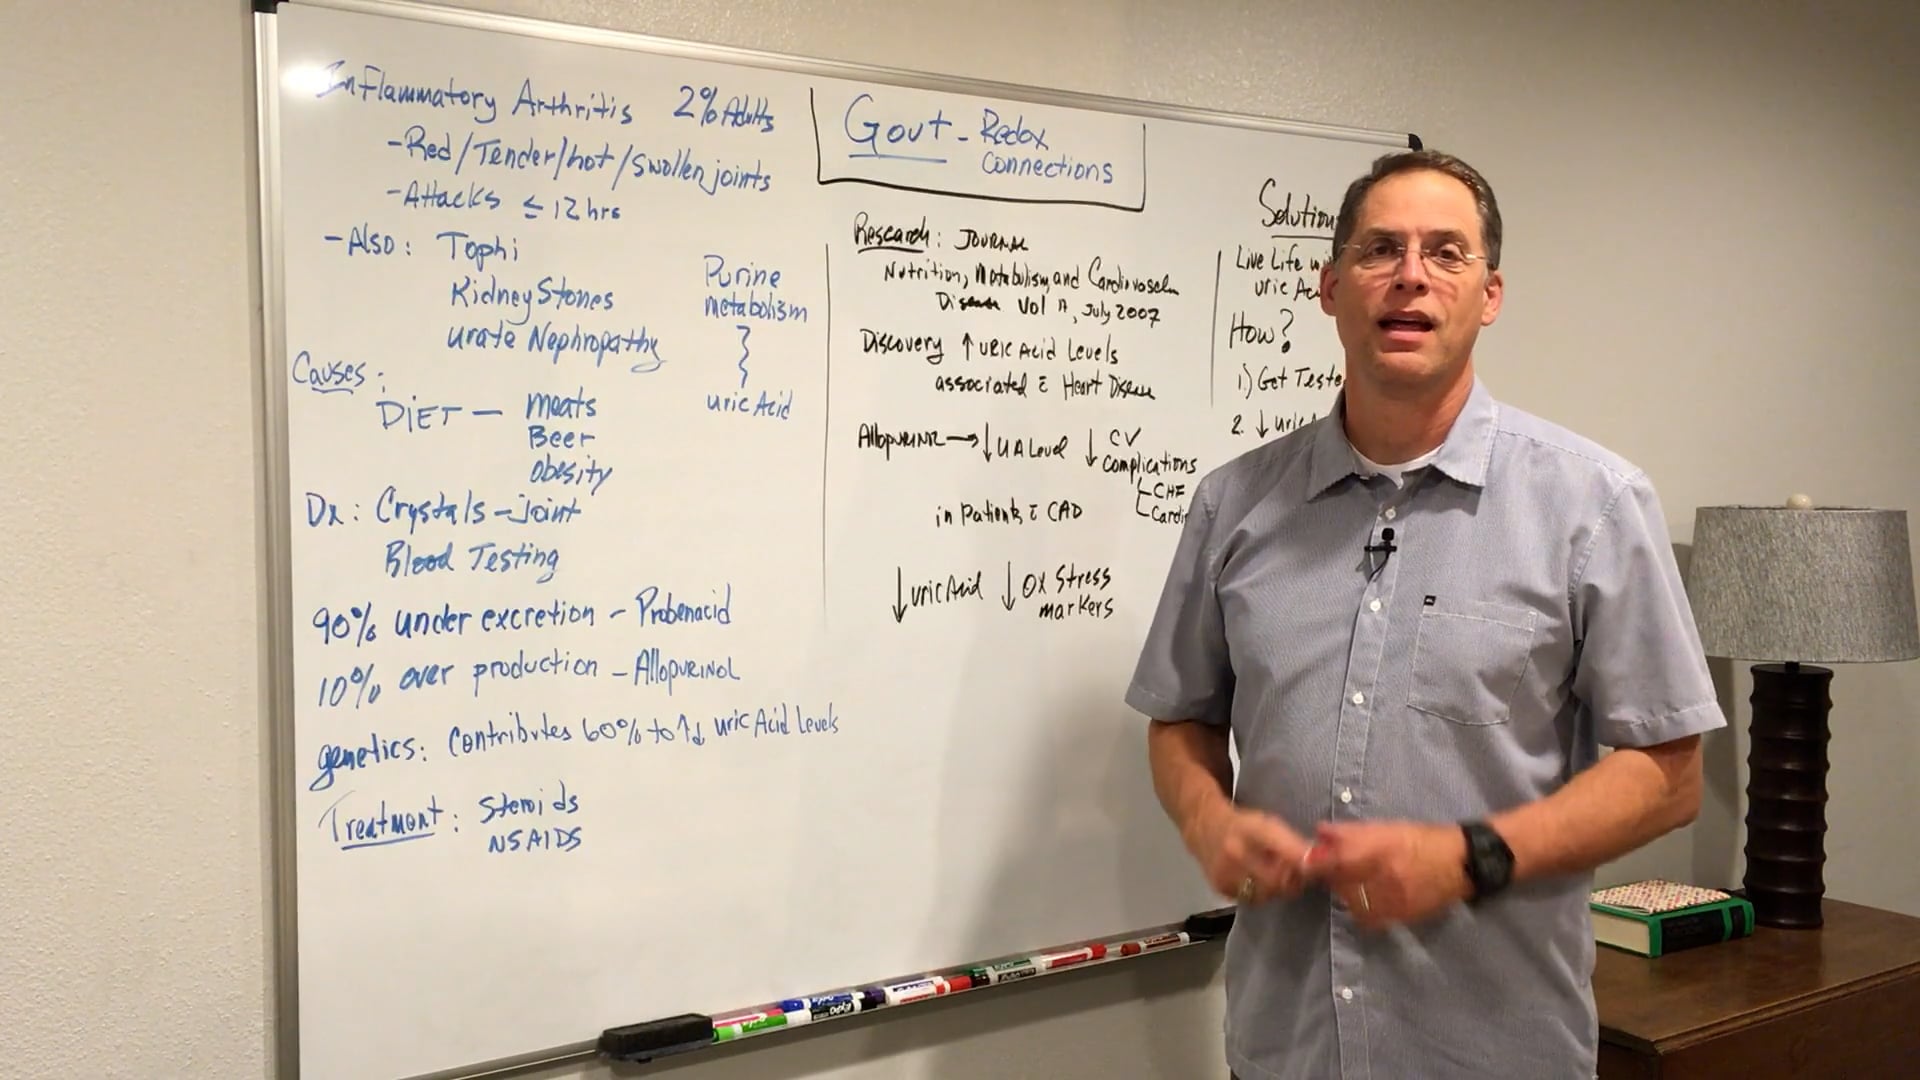 Inflammatory Arthritis 2% Adults
-Red/Tender/hot/swollen joints
-Attacks ≤ 12 hrs
-Also: Tophi
Kidney Stones
urate Nephropathy
Purine
metabolism
uric Acid
Causes:
DIET - meats
Beer
obesity
Dx: Crystals - joint
Blood Testing
90% under excretion - Probenacid
10% over production - Allopurinol
genetics: Contributes 60% to ↑↓ uric Acid Levels
Treatment: Steroids
NSAIDS
Gout - Redox
connections
Research: Journal
Nutrition, Metabolism, and Cardiovascular
Disease Vol 17, July 2007
Discovery ↑ uric Acid Levels
associated c̄ Heart Disease
Allopurinol → ↓ UA Level ↓ CV
complications
CHF
Cardi
in Patients c̄ CAD
↓ uric Acid ↓ ox Stress
markers
Solution
Live Life
uric Ac
How?
1.) Get Teste
2. ↓ uric A